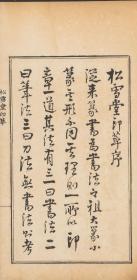 松雪堂印萃序
從來篆書為書法之祖大篆小
篆之形不同其理則一所以印
章一道其法有三一曰書法二
曰筆法三曰刀法無書法則考
松雪堂印萃